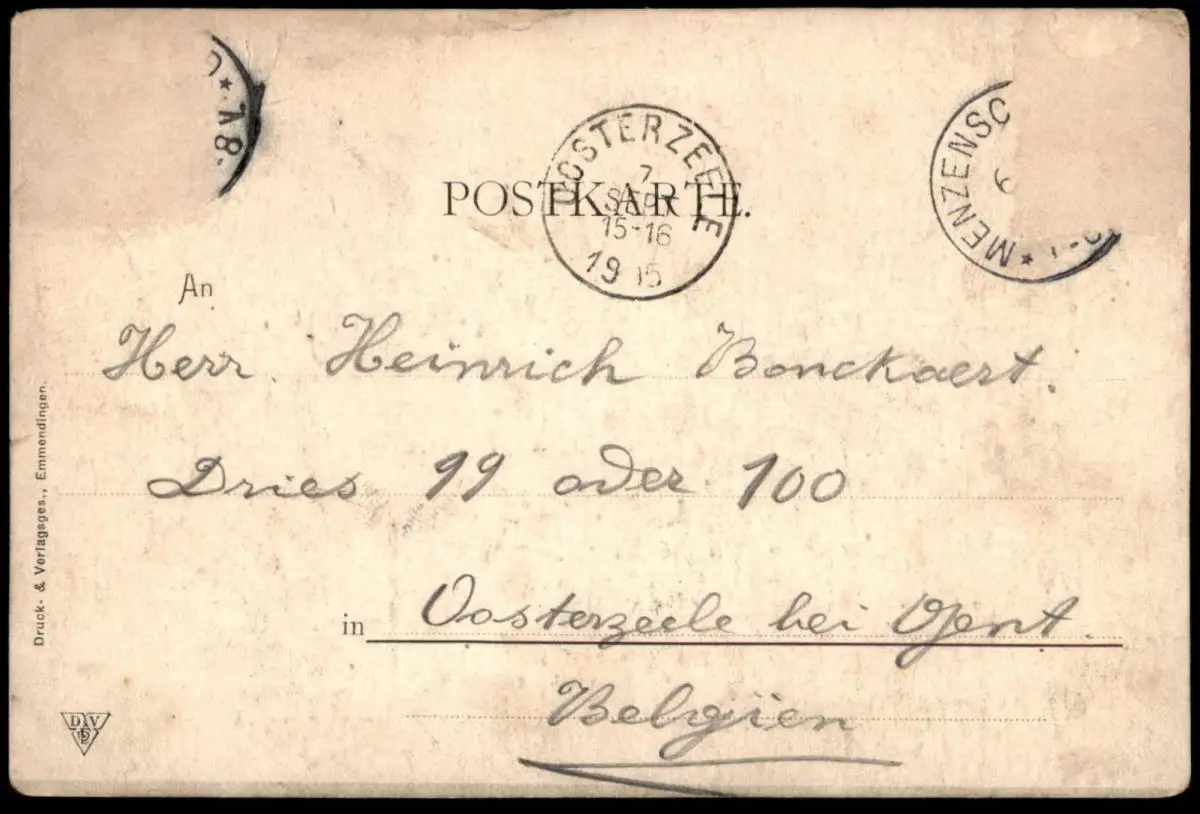 * 7-8.
OOSTERZEELE
7
SEPT
15-16
19 05
MENZENSC
6
*
POSTKARTE.
An
Herr Heinrich Bonckaert.
Dries 99 oder 100
in Oosterzeele bei Gent.
Belgien
Druck- & Verlagsges., Emmendingen.
DVE